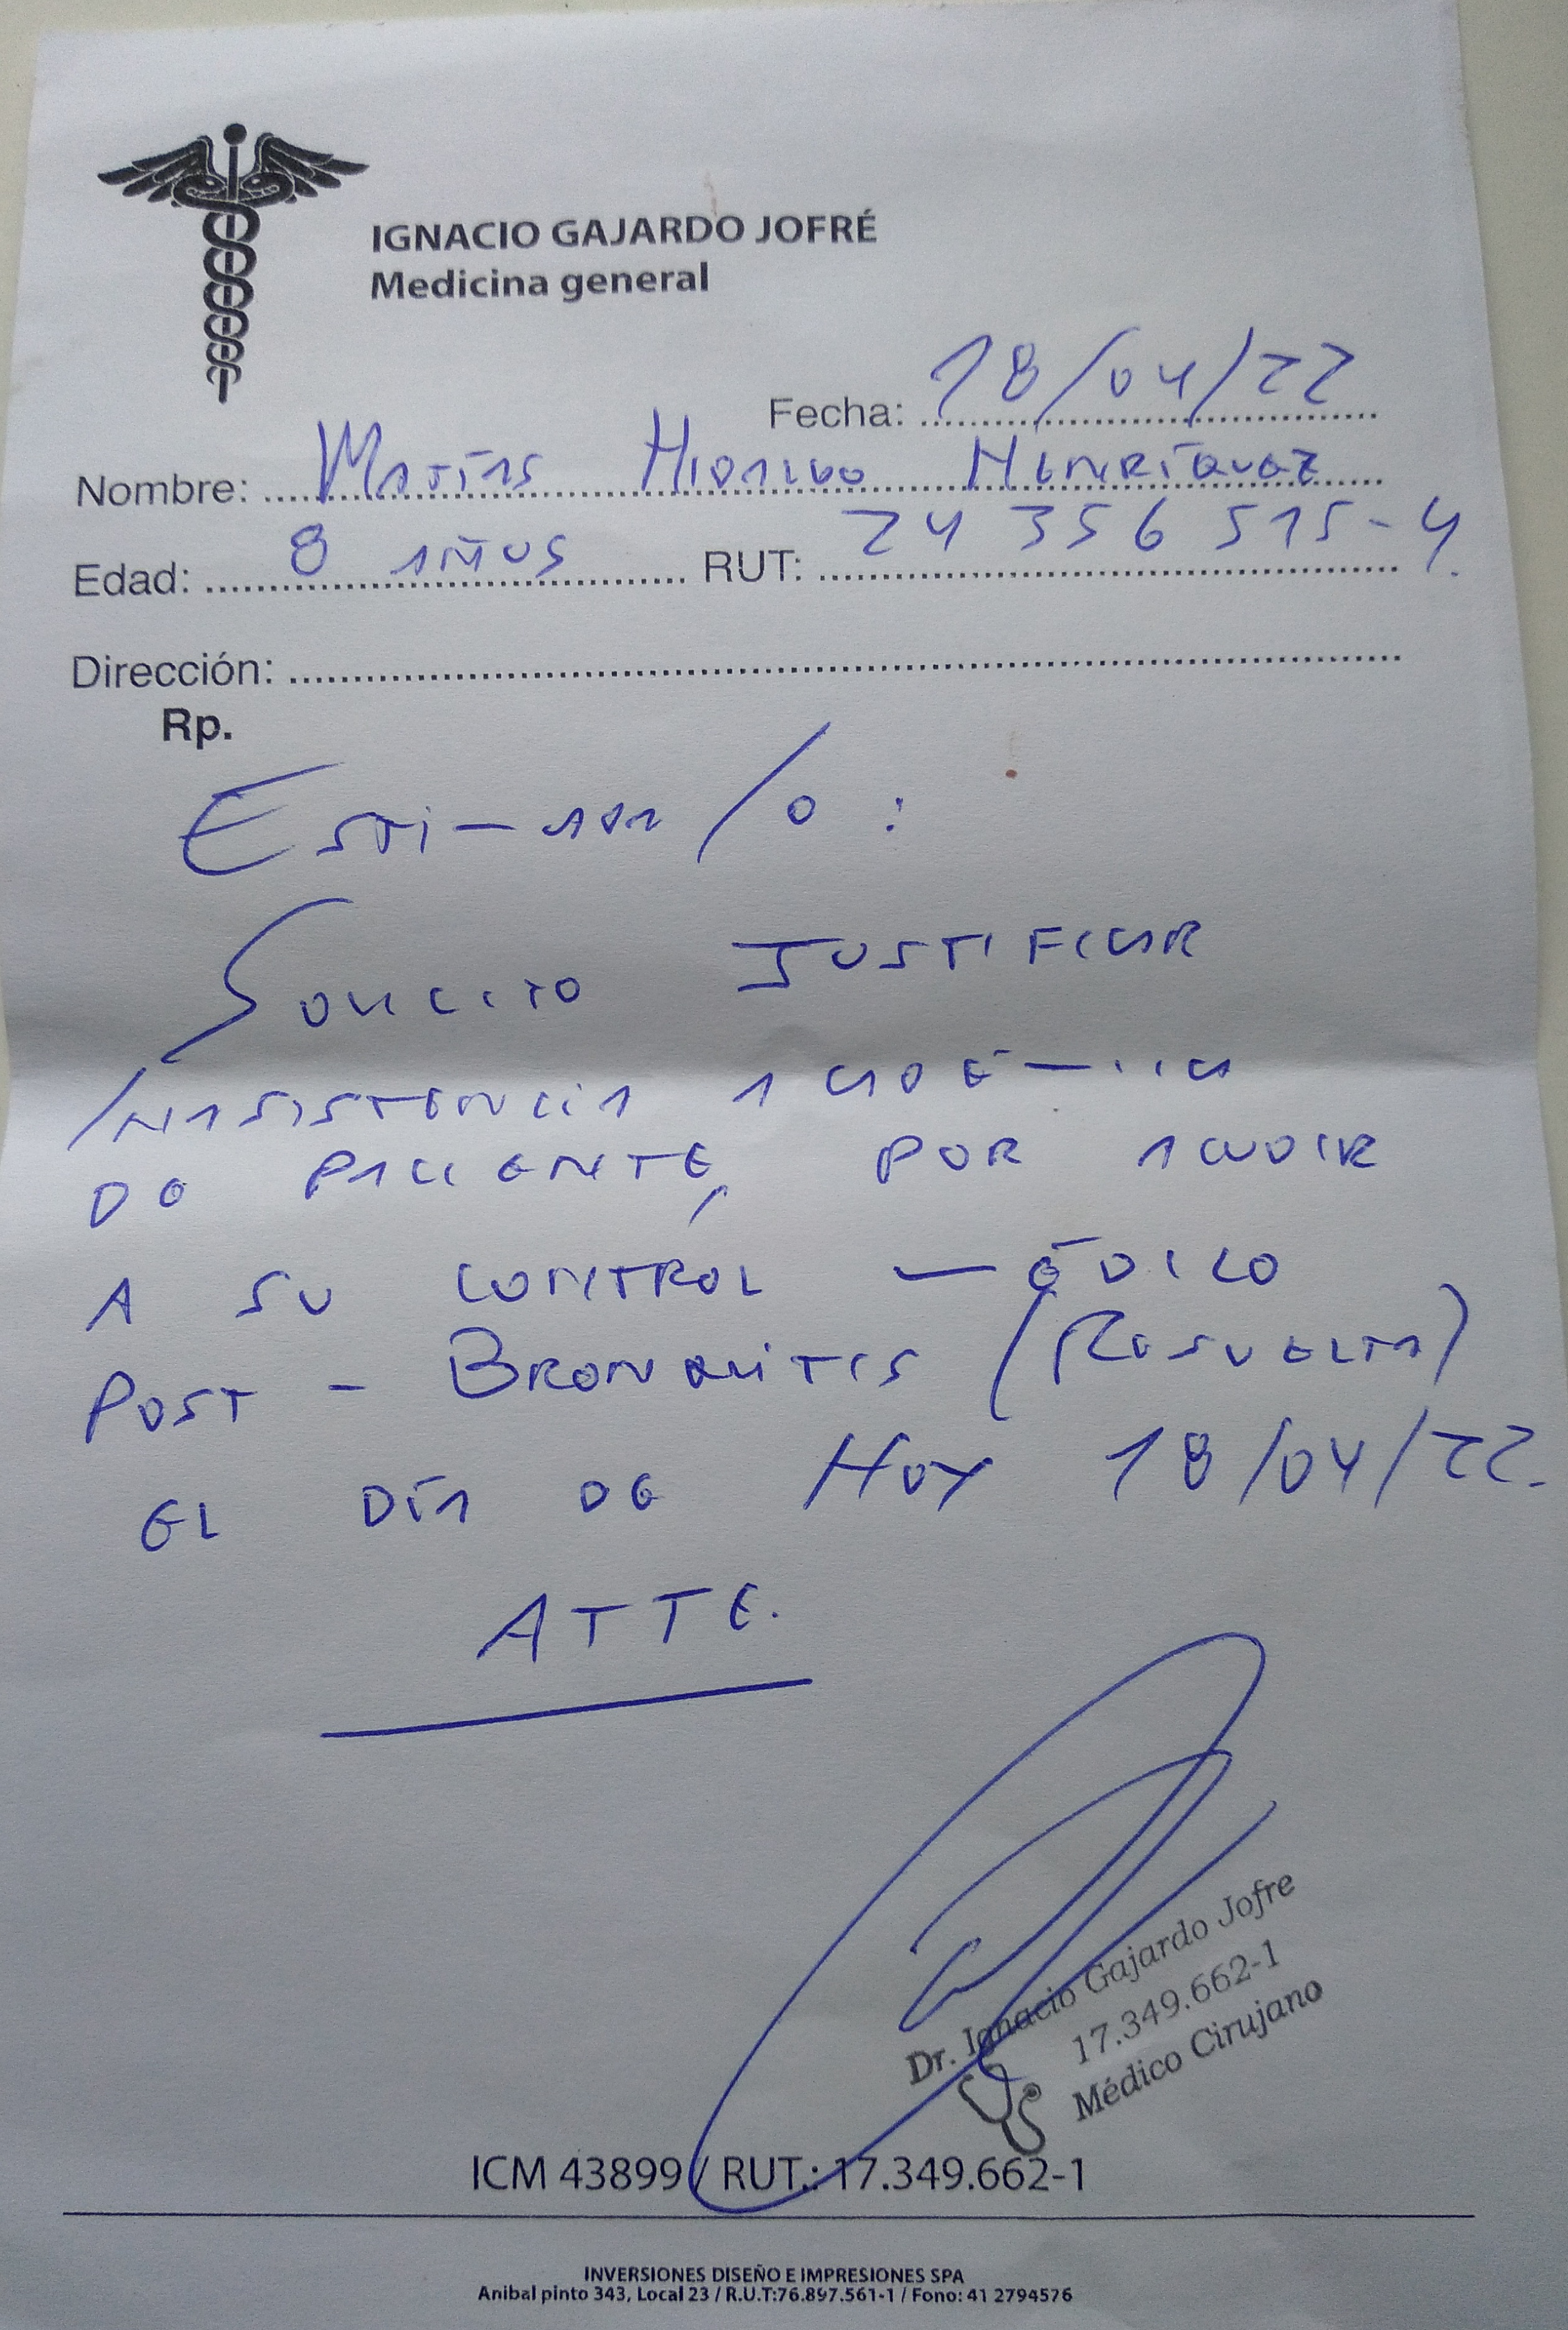 IGNACIO GAJARDO JOFRÉ
Medicina general
Fecha: 18/04/22
Nombre: Matías Hidalgo Henríquez
Edad: 8 años RUT: 24 356 515-4.
Dirección:
Rp.
Estimada/o:
Solicito JUSTIFICAR
INASISTENCIA ACADÉMICA
DE PACIENTE, POR ACUDIR
A SU CONTROL MÉDICO
POST - BRONQUITIS (RESUELTA)
EL DÍA DE HOY 18/04/22.
ATTE.
Dr. Ignacio Gajardo Jofre
17.349.662-1
Médico Cirujano
ICM 43899 / RUT.: 17.349.662-1
INVERSIONES DISEÑO E IMPRESIONES SPA
Anibal pinto 343, Local 23 / R.U.T:76.897.561-1 / Fono: 41 2794576